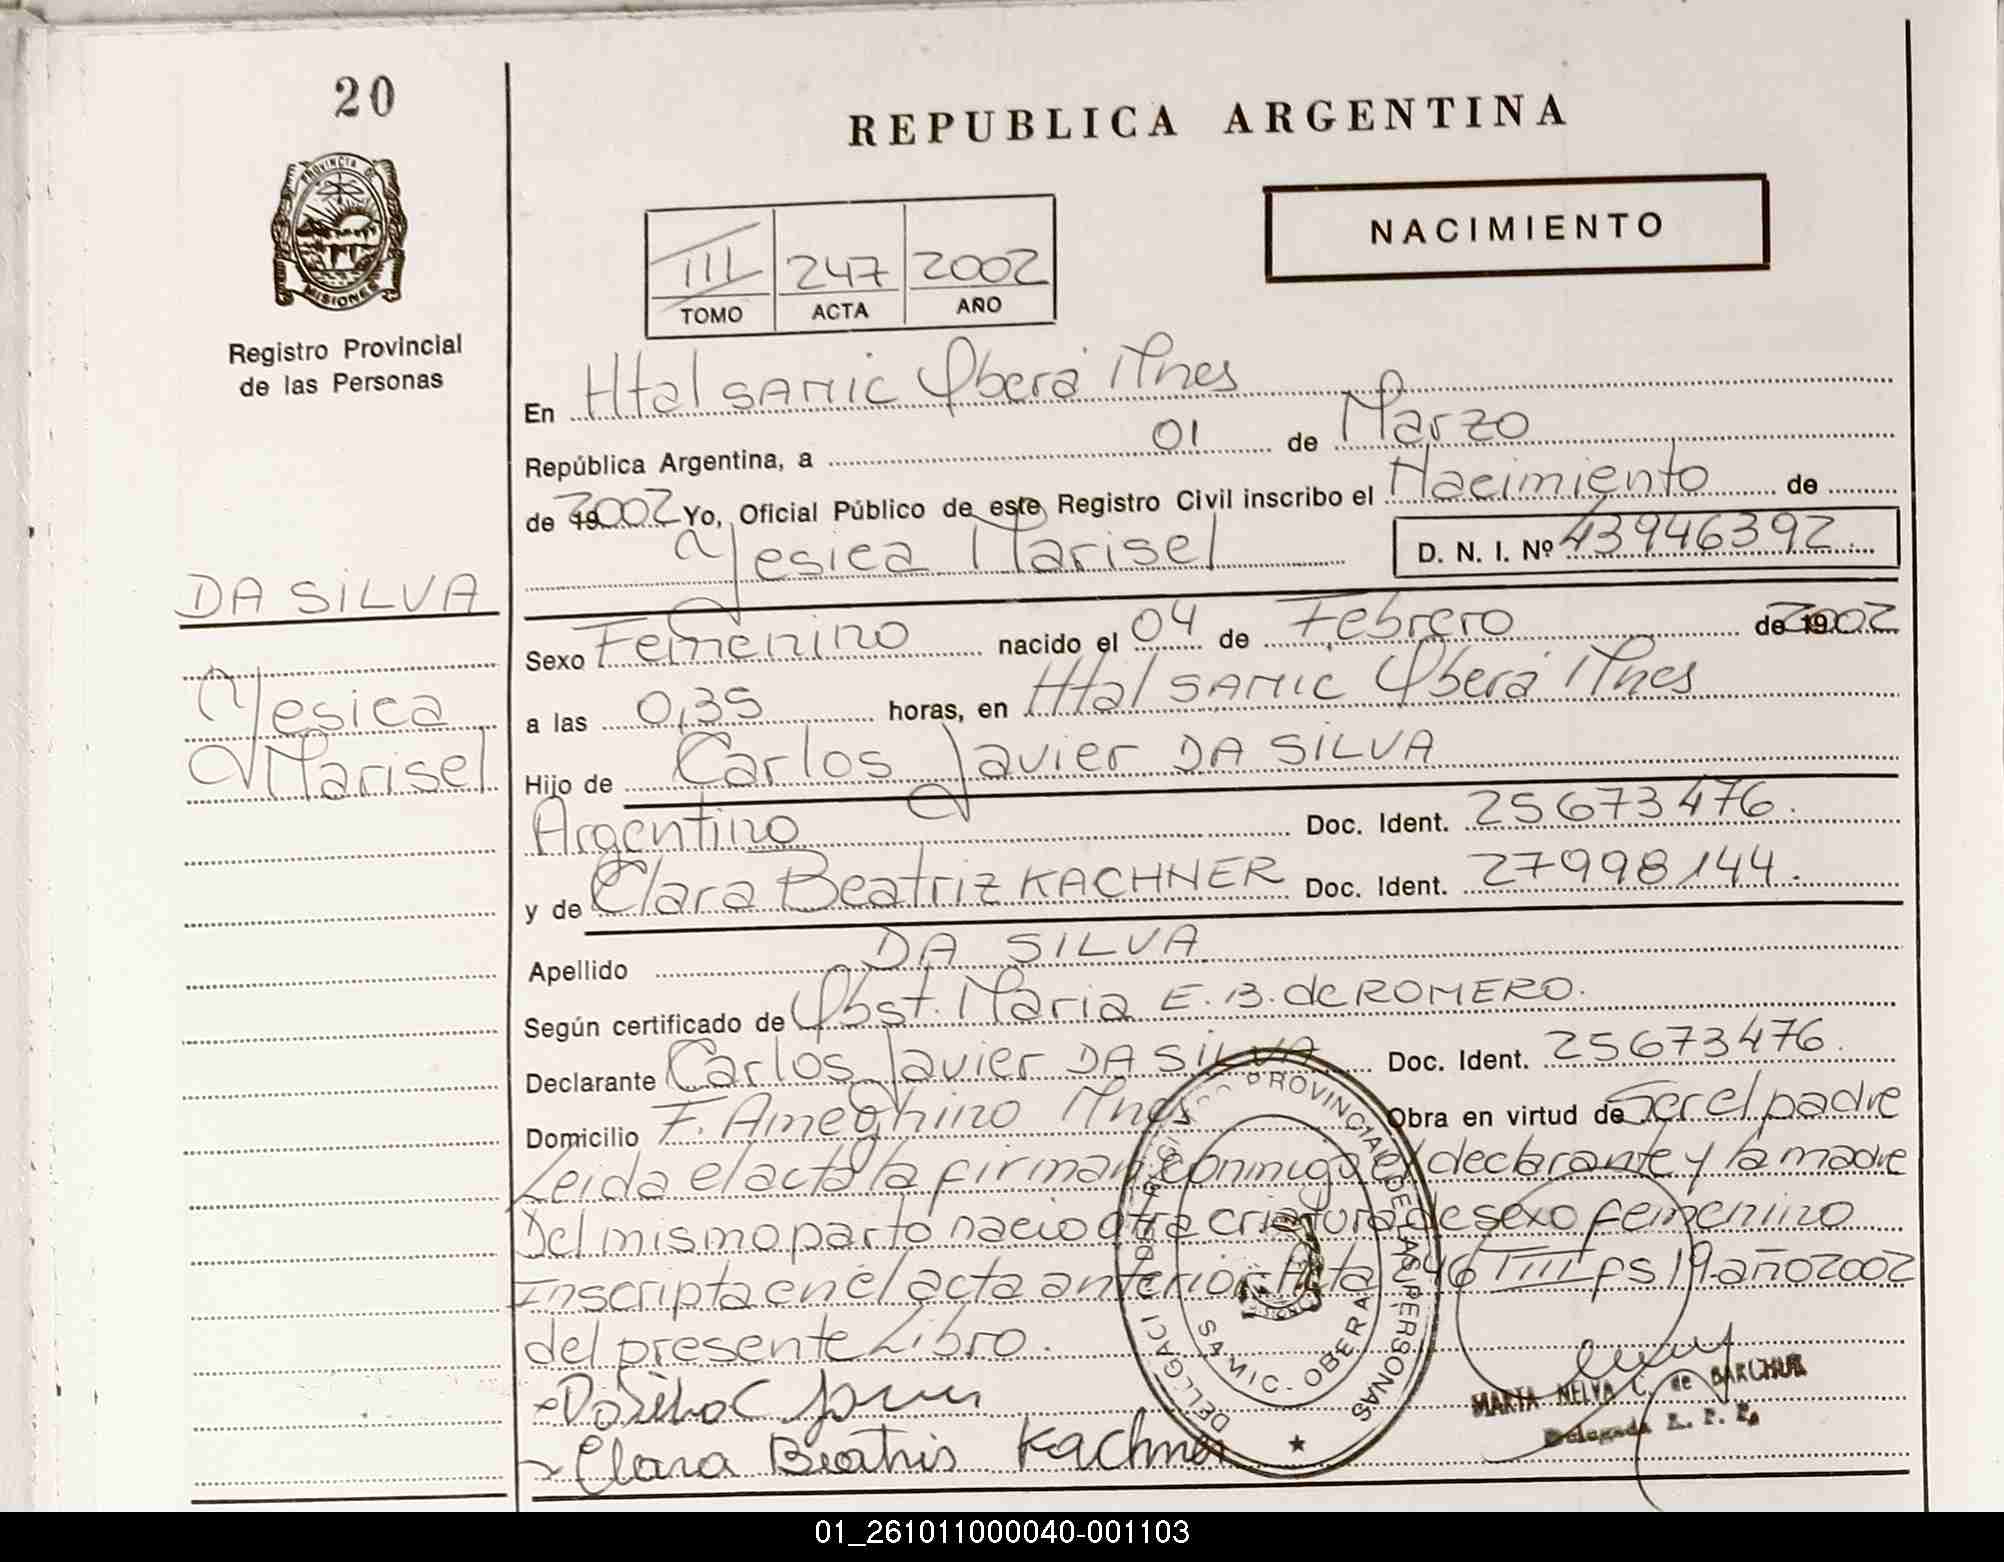 20
REPUBLICA ARGENTINA
PROVINCIA DE
MISIONES
NACIMIENTO
III 247 2002
TOMO ACTA AÑO
Registro Provincial
de las Personas
En Htal SAMIC Oberá Mnes
República Argentina, a 01 de Marzo
de 19 2002 Yo, Oficial Público de este Registro Civil inscribo el Nacimiento de
Yesica Marisel D. N. I. Nº 43946392
DA SILVA
Yesica
Marisel
Sexo Femenino nacido el 04 de Febrero de 19 2002
a las 0,35 horas, en Htal SAMIC Oberá Mnes
Hijo de Carlos Javier DA SILVA
Argentino Doc. Ident. 25673476.
y de Clara Beatriz KACHNER Doc. Ident. 27998144.
Apellido DA SILVA
Según certificado de Obst. Maria E. B. de ROMERO.
Declarante Carlos Javier DA SILVA Doc. Ident. 25673476.
Domicilio F. Ameghino Mnes Obra en virtud de Ser el padre
Leida el acta la firman conmigo el declarante y la madre
Del mismo parto nacio otra criatura de sexo femenino
Inscripta en el acta anterior Acta 246 TIII fs 19 año 2002
del presente Libro.
PROVINCIAL DE LAS PERSONAS
SAMIC - OBERA
MARTA NELVA C. de BARCHUK
Delegada R. P. P.
Clara Beatris Kachner
01_261011000040-001103